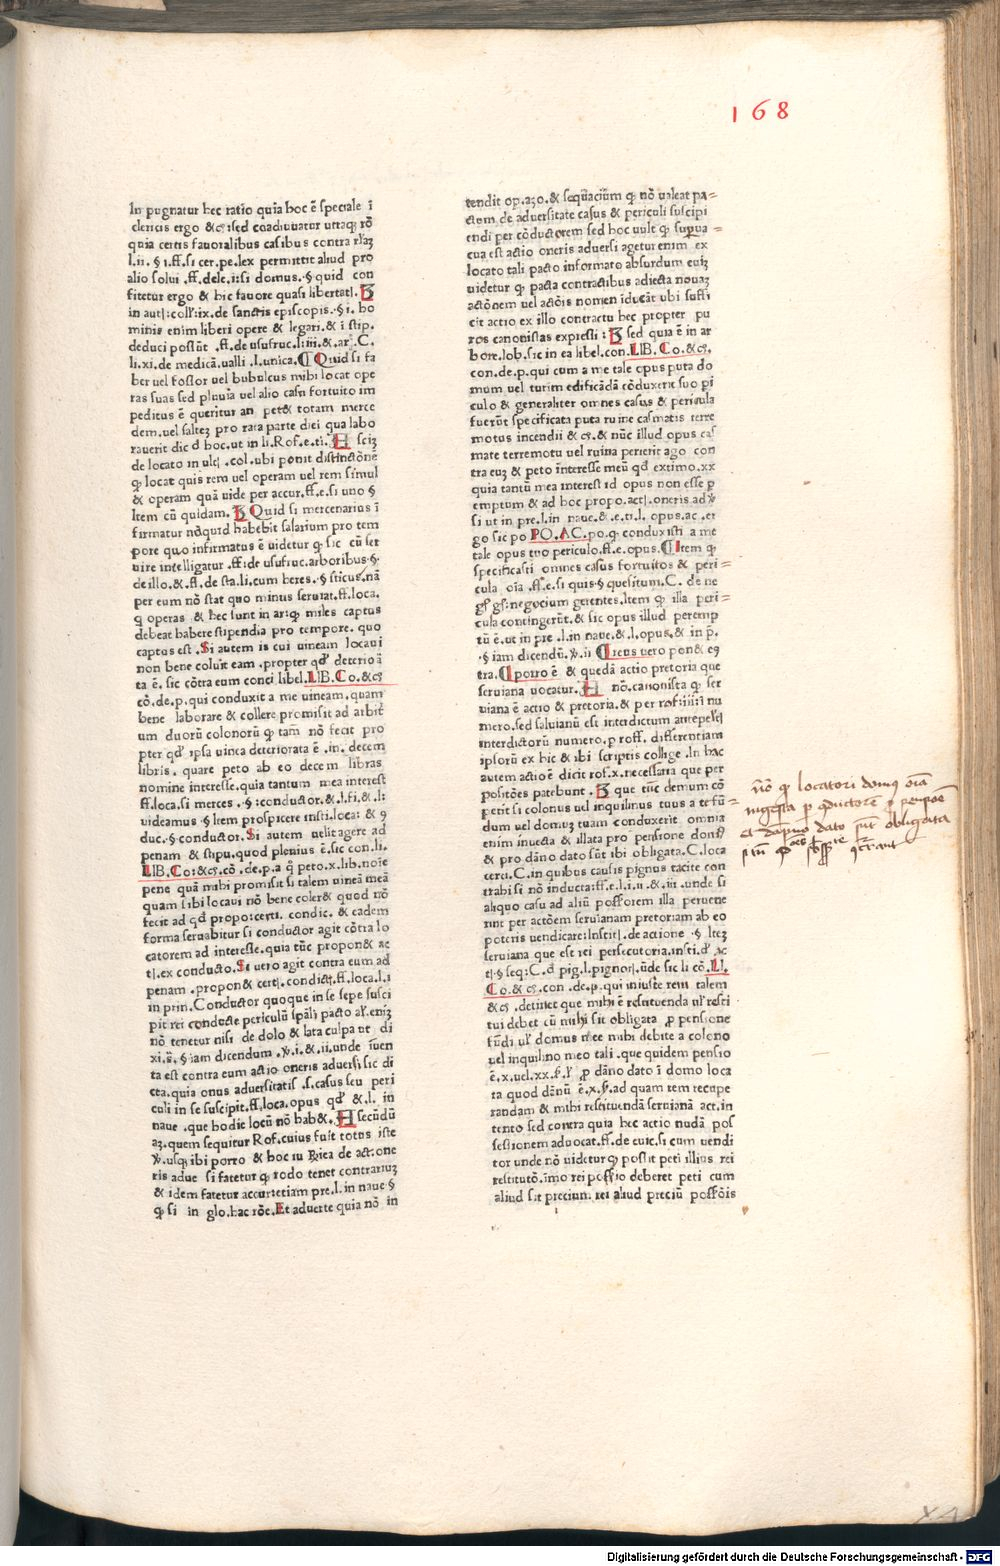 168
In pugnatur hec ratio quia hoc ē speciale ī
clericis ergo &cꝭ sed coadiuuatur utraqꝫ rō
quia certis fauoralibus casibus contra
l.ii. § i.ff.si cer.pe.lex permittit aliud pro
alio solui .ff.de le.ii si domus. § quid con
fitetur ergo & hic fauore quasi libertatꝭ.
in autꝭ: coll':ix.de sanctis episcopis. § i. ho
minis enim liberi opere & legari.& ī stip.
deduci possūt .ff.de usufruc.l:iii.&.ar'.C.
li.xi.de medicā.ualli .l.unica. Quid si fa
ber uel fossor uel bubulcus mihi locat ope
ras suas sed pluuia uel alio casu fortuito im
peditus ē queritur an pet& totam merce
dem.uel saltez pro rata parte diei qua labo
rauerit dic d hoc.ut in li.Rof.e.ti. H sciꝫ
de locato in ultꝭ .col.ubi ponit distinctōnē
ꝙ locat quis rem uel operam uel rem simul
& operam quā uide per accur.ff.e.si uno §
Item cū quidam. Quid si mercenarius ī
firmatur nūquid habebit salarium pro tem
pore quo infirmatus ē uidetur ꝙ sic cū ser
uire intelligatur .ff:de usufruc.arboribus. §.
de illo.&.ff.de sta.li.cum heres. § sticus.nā
per eum nō stat quo minus seruiat.ff.loca.
q operas & hec sunt in ar:ꝙ miles captus
debeat habere stipendia pro tempore. quo
captus est .Si autem is cui uineam locaui
non bene coluit eam .propter qd' deteriora
ta ē. sic cōtra eum conci.libel. LIB. Co.&cꝭ
cō.de.p.qui conduxit a me uineam.quam
bene laborare & collere promisit ad arbit'
um duorū colonorū ꝙ tam̄ nō fecit pro
pter qd' ipsa uinea deteriorata ē .in. decem
libris. quare peto ab eo decem libras
nomine interesse.quia tantum mea interest
ff.loca.si merces . § :conductor.&.l.si.&.l:
uideamus . § Item prospicere insti.loca: & ꝯ
duc. § conductor. Si autem uelit agere ad
penam & stipu.quod plenius ē.sic con.li.
LIB. Co:&cꝭ.cō .de.p.a q̄ peto.x.lib.noīe
pene quā mihi promisit si talem uineā meā
quam sibi locaui nō bene coler& quod nō
fecit ad qd' propo:certi. condic. & eadem
forma seruabitur si conductor agit cōtra lo
catorem ad interesse.quia tūc propon& ac
tꝭ.ex conducto. Si uero agit contra eum ad
penam .propon& certꝭ.condictꝭ.ff.loca.l.i
in prin.Conductor quoque in se sepe susci
pit rei conducte periculū spāli pacto
nō tenetur nisi de dolo & lata culpa ut di
xi.s. § iam dicendum .℣.i.& .ii.unde iuen
ta est contra eum actio oneris aduersi.sic di
cta.quia onus aduersitatis .s.casus seu peri
culi in se suscipit.ff.loca.opus qd' &.l. in
naue .que hodie locū nō hab&. H secūdū
aꝫ.quem sequitur Rof.cuius fuit totus iste
℣.usqꝫ ibi porro & hoc in de act.one
ris adue si fatetur ꝙ rodo tenet contrariuꝫ
& idem fatetur accur:etiam pre.l.in naue §
ꝙ si in glo.hac rōe. Et aduerte quia nō in
tendit op.azo.& sequacium ꝙ nō ualeat pa-
ctum de aduersitate casus & periculi suscipi
endi per cōductorem sed hoc uult ꝙ superua-
cua est actio oneris aduersi ageretur enim ex
locato tali pacto informato absurdum
uidetur ꝙ pacta contractibus adiecta nouaꝫ
actōnem uel actōis nomen iducāt ubi suffi
cit actio ex illo contractu hec propter pu
ros canonistas expressi : sed quia ē in ar
bore.lob.sic in ea libel.con. LIB. Co.&cꝭ.
con.de.p.qui cum a me tale opus puta do
mum uel turim edificādā cōduxerit suo pi
culo & generaliter omnes casus & pericula
fuerūt specificata puta ruine casmatis terre
motus incendii & cꝭ.& nūc illud opus cas
mate terremotu uel ruina perierit ago con
tra euꝫ & peto īteresse meū qd extimo.xx
quia tantū mea interest id opus non esse p
emptum & ad hoc propo.actꝭ.oneris ad℣
si ut in pre.l.in naue.&.e.ti.l. opus.ac .er
go sic po PO.AC.po.q.conduxisti a me
tale opus tuo periculo.ff.e.opus. Item ꝙ
specificasti omnes casus fortuitos & peri-
cula oīa .ff.e.si quis § quesitum.C. de ne
gꝭ gꝭ:negocium gerentes.Item ꝙ illa peri-
cula contingerūt.& sic opus illud peremp
tū ē.ut in pre .l.in naue.&.l.opus.& in p̄.
§ iam dicendū.℣.ii Circus uero pon& eꝯ
tra. porro ē & quedā actio pretoria que
seruiana uocatur. H nō.canonista ꝙ ser
uiana ē actio & pretoria.& per rof:iiii:ī nu
mero.sed saluianū est interdictum
interdictorū numero.p roff. differentiam
ipsorū ex hic & ibi scriptis collige .In hac
autem actiōe dicit rof.x.necessaria que per
positōes patebunt. que tūc demum cō
petit si colonus uel inquilinus tuus a te fū-
dum uel domuꝫ tuam conduxerit omnia
enim inuecta & illata pro pensione domꝭ
& pro dāno dato sūt ibi obligata.C.loca
certi.C.in quibus causis pignus tacite con
trahi si nō inducta:ff.e.l.i.ii .&.iii .unde si
aliquo casu ad aliū possorem illa peruene
rint per actōem seruianam pretoriam ab eo
poteris uendicare:Instit.de actione . § Iteꝫ
seruiana que est rei persecutoria.insti.d' ac
tꝭ § seq:C.d pig.l.pignorꝭ.ūde sic li cō. LI.
Co.& cꝭ.con .de.p.qui iniuste rem talem
&cꝭ .detinet que mihi ē restituenda ul' resti
tui debet cū mihi sit obligata p pensione
fūdi ul' domus mee mihi debite a colono
uel inquilino meo tali .que quidem pensio
ē.x.uel.xx.s.l' p dāno dato ī domo loca
ta quod dānū ē.x.s.ad quam rem recupe
randam & mihi restituendā seruianā act.in
tento sed contra quia hec actio nudā pos
sessionem aduocat.ff.de euic.si cum uendi
tor unde nō uidetur ꝙ possit peti illius rei
restitutō.imo rei possio deberet peti cum
aliud sit precium rei aliud preciū possōis
nō ꝙ locatori domꝰ oīa
ingesta p ꝯductorē p pensiōe
et dampno dato sūt obligata
Digitalisierung gefördert durch die Deutsche Forschungsgemeinschaft - DFG